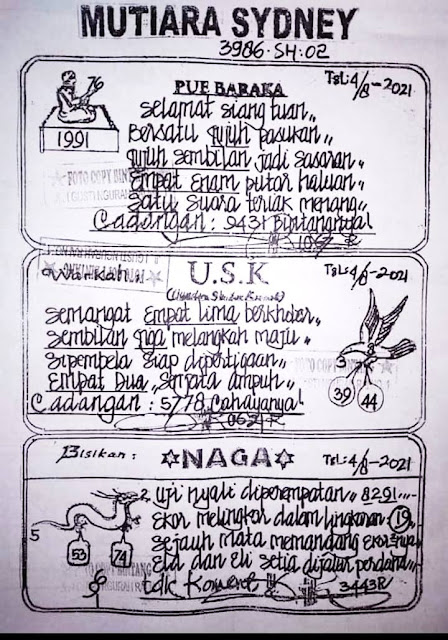 MUTIARA SYDNEY
3986-SH:02
PUE BARAKA
Tgl: 4/8-2021
76
1991
Selamat siang tuan,,
Bersatu tujuh pasukan,,
tujuh sembilan jadi sasaran,,
Empat Enam putar haluan,,
Satu suara teriak menang,,
Cadangan: 9431
U.S.K
Tgl: 4/8-2021
Semangat Empat lima berkhobar,,
Sembilan tiga melangkah maju,,
Sipembela siap dipertigaan,,
Empat Dua, senjata ampuh,,
Cadangan: 5778 Cahayanya!
3
39
44
Bisikan:
NAGA
Tgl: 4/8-2021
2
5
53
74
8
uji nyali diperempatan,, 8291
Ekor melingkor dalam lingkaran 19
Sejauh mata memandang ekornya
Eld dan Eli setia dijalur perdana
3443R